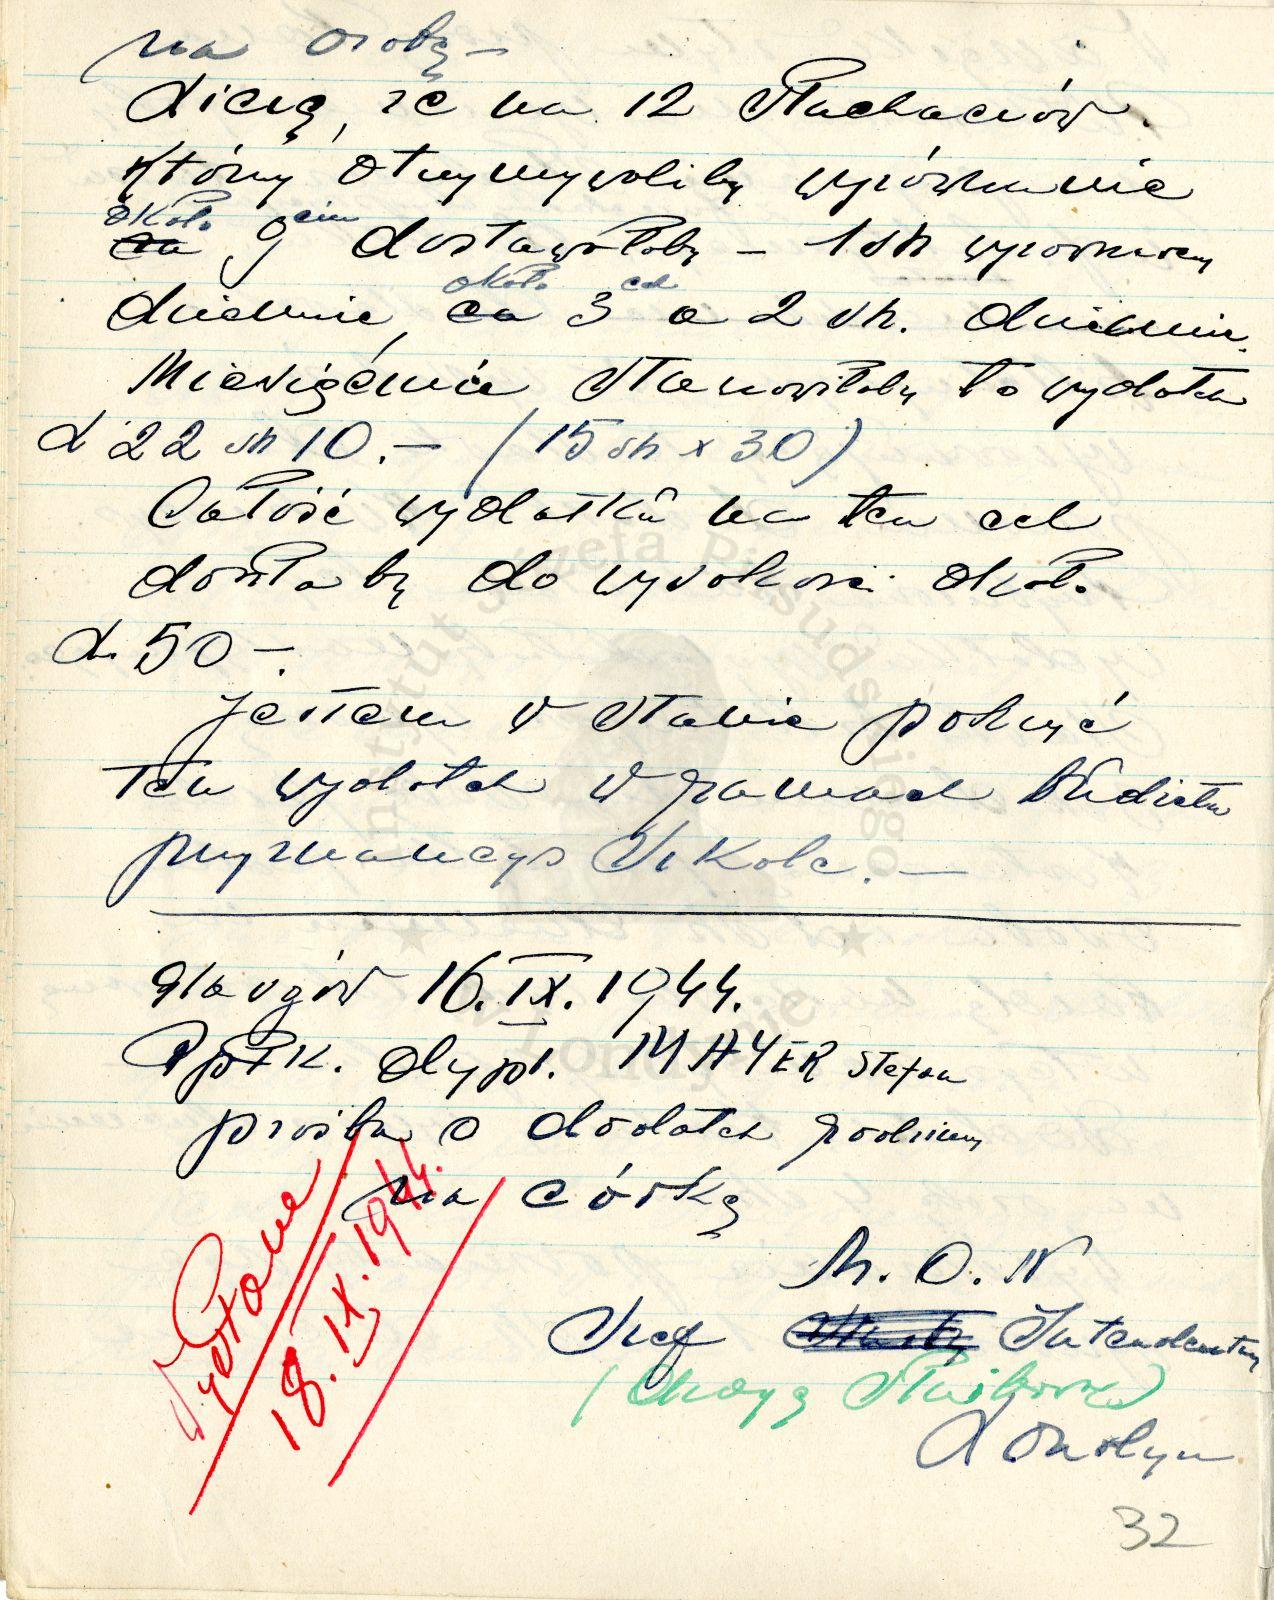 na osobę –
Liczę, że na 12 słuchaczów,
którzy otrzymywaliby wyrównanie
około
ca 9 ciu dostawałoby – 1 sh wyrównany
około
dziennie, ca 3 ech a 2 sh. dziennie.
Miesięcznie stanowiłoby to wydatek
£ 22 sh 10.– (15 sh x 30)
Całość wydatków na ten cel
doszłaby do wysokości około
£ 50 –.
Jestem w stanie pokryć
ten wydatek w ramach budżetu
przyznanego Szkole. –
Glasgów 16.IX.1944.
Ppłk. dypl. MAYER Stefan
prośba o dodatek rodzinny
na córkę
Wysłane
18.IX.1944.
M.O.N
Szef Intendentury
(drogą służbową)
Londyn
32
Instytut Józefa Piłsudskiego
w Londynie